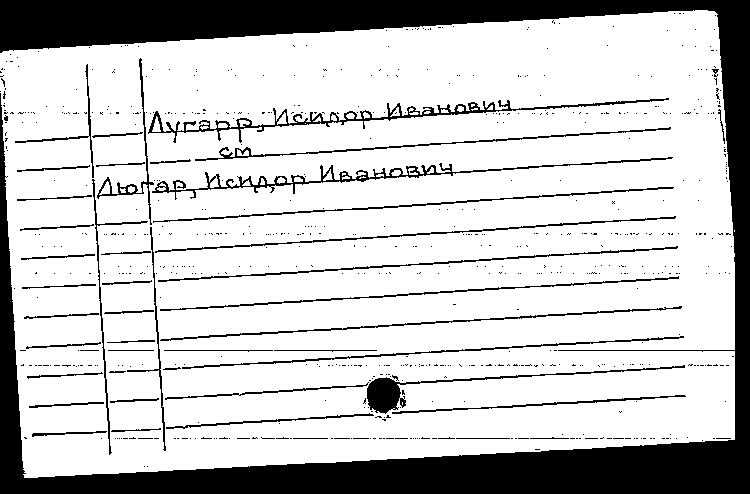 Лугарр, Исидор Иванович
см
Люгар, Исидор Иванович